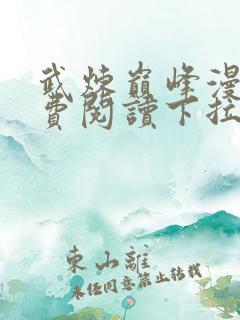 武炼巅峰漫
费閱讀下拉
東山離
未经同意禁止转载